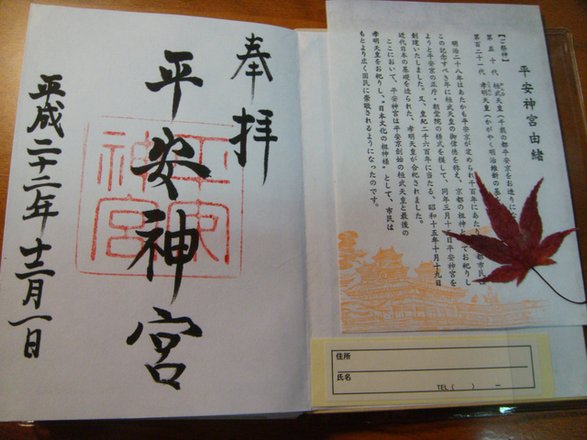 奉拝
平安神宮
平安神宮
平成二十二年十二月一日
平安神宮由緒
【ご祭神】
第五十代 桓武天皇(千載の都平安京をお造りにな
第百二十一代 孝明天皇( 明治維新の基
明治二八年はあたかも平安京が定められ千百年にあたり 都市民は
この記念すべき年に桓武天皇の御偉徳を称え、京都の祖神としてお祀りし
ようと平安京の正庁・朝堂院の様式を模して、同年三月十 日平安神宮を
創建いたしました。又、皇紀二千六百年に当たる、昭和十五年十月十九日
近代日本の基礎を造られた、孝明天皇が合祀されました。
ここにおいて、平安神宮は平安京創始の桓武天皇と最後の
孝明天皇をお祀りし、"日本文化の祖神様"として、市民は
もとより広く国民に崇敬されるようになったのです。
住所
氏名
TEL( ) ー